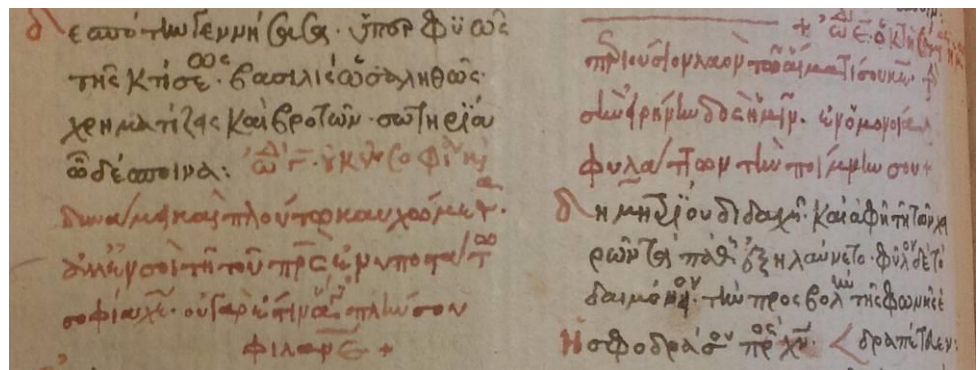 δεσποτην γεννησασα· ὑπερφυῶς
τῆς κτίσεως· βασιλὶς ὡς ἀληθῶς·
χρηματίζεις καὶ βροτῶν· σωτηρία
ὦ δέσποινα: ᾠδ γ· οὐκ ἐν σοφία κ
δυνάμει καὶ πλούτω καυχόμεθα·
ἀλλ' ἐν σοὶ τῆ τοῦ πρς ἐνυποστάτω
σοφία χε· οὐ γάρ ἐστιν ἅγιος πλὴν σου
φιλανε +
+ ᾠδ ε· ὁ κτησάμενος
περιούσιον λαὸν τῶ αἵματί σου κε·
εἰρήνην δὸς ἡμῖν· ἐν ὁμονοία
φυλάττων τὴν ποίμνην σου +
δημητρίου διδαχῆ· καὶ ἀφῆ τῆ τῶν χει
ρῶν πάθη ἐξηλαύνετο· φῦλον δὲ τὸ
δαιμόνων· τὴν προσβολὴν τῆς φωνῆς
ἡ σφοδρά σου πρὸς χν· δραπετευεν: